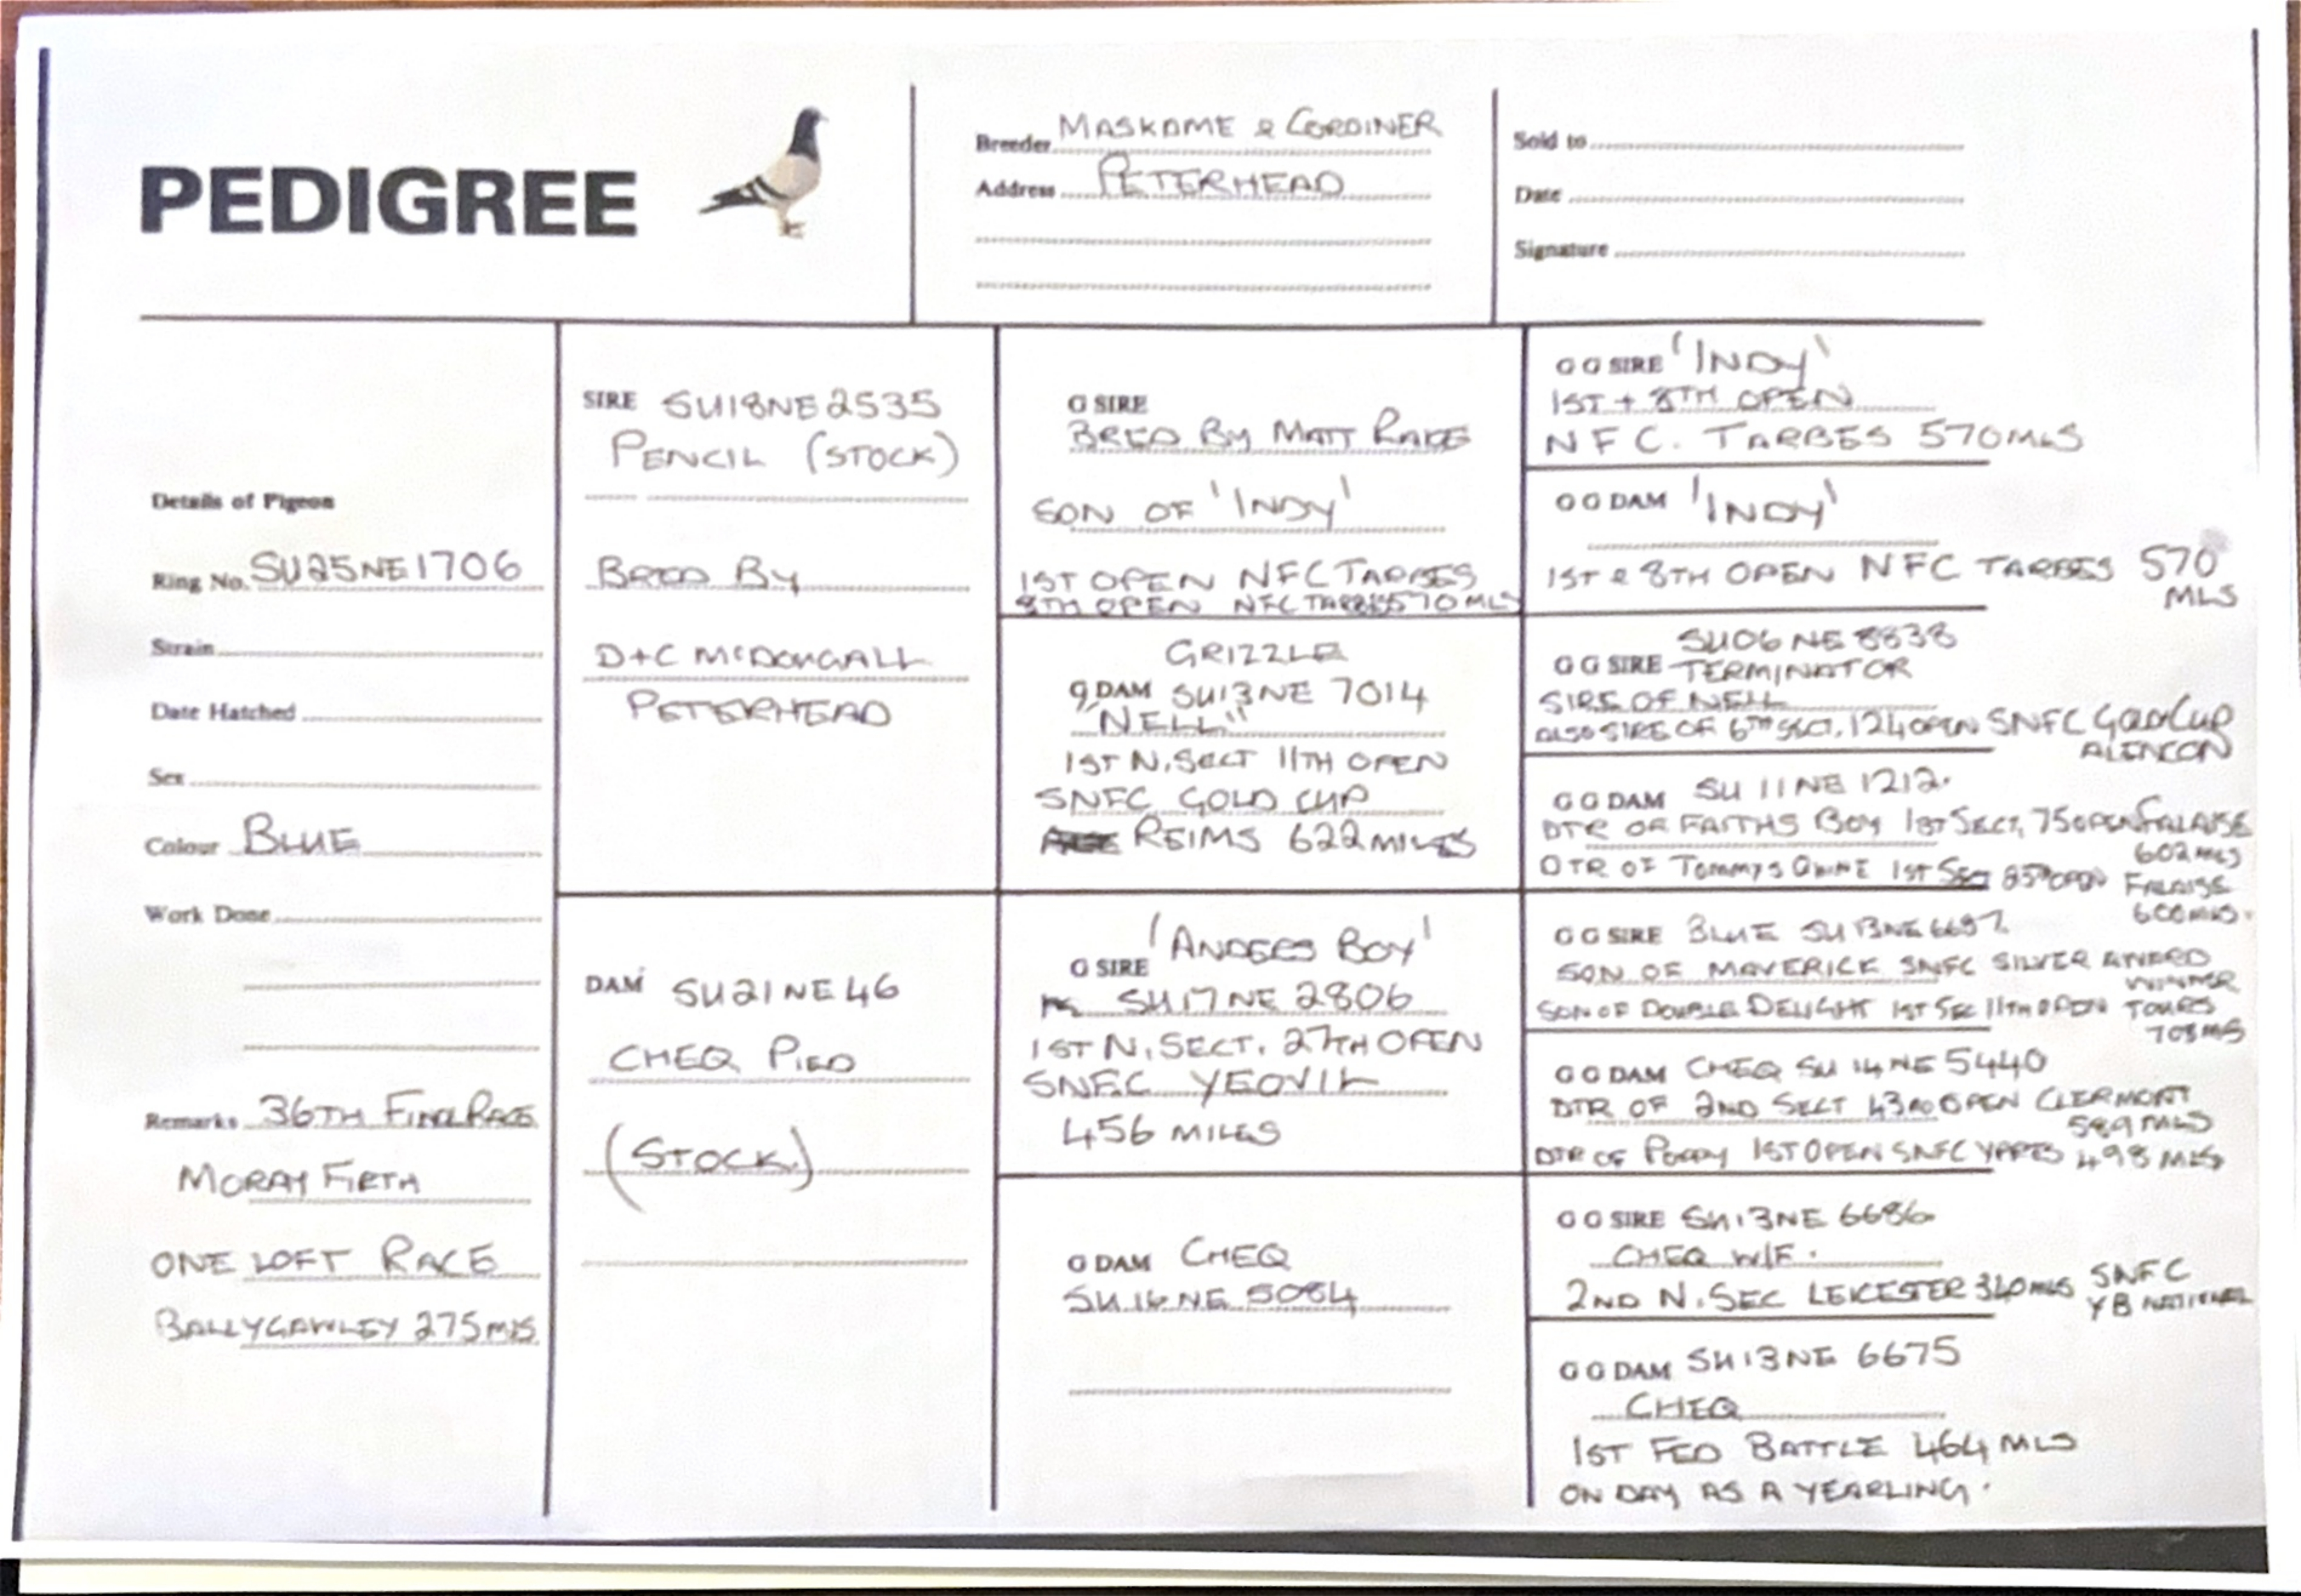 PEDIGREE
Breeder MASKAME & CORDINER
Address PETERHEAD
Sold to
Date
Signature
Details of Pigeon
Ring No. SU25NE1706
Strain
Date Hatched
Sex
Colour BLUE
Work Done
Remarks 36TH FINAL RACE
MORAY FIRTH
ONE LOFT RACE
BALLYGAWLEY 275 MLS
SIRE SU18NE2535
PENCIL (STOCK)
BRED BY
D+C McDOUGALL
PETERHEAD
DAM SU21NE46
CHEQ PIED
(STOCK)
G SIRE
BRED BY MATT RAKE
SON OF 'INDY'
1ST OPEN NFC TARBES
8TH OPEN NFC TARBES 570 MLS
GRIZZLE
G DAM SU13NE 7014
"NELL"
1ST N. SECT 11TH OPEN
SNFC GOLD CUP
REIMS 622 MILES
'ANDERS BOY'
G SIRE
SU17NE 2806
1ST N. SECT. 27TH OPEN
SNFC YEOVIL
456 MILES
G DAM CHEQ
SU16NE 5084
G G SIRE 'INDY'
1ST + 8TH OPEN
NFC. TARBES 570 MLS
G G DAM 'INDY'
1ST & 8TH OPEN NFC TARBES 570
MLS
SU06 NE 8838
G G SIRE TERMINATOR
SIRE OF NELL
ALSO SIRE OF 6TH SECT, 124 OPEN SNFC GOLD CUP
ALENCON
G G DAM SU 11NE 1212.
DTR OF FAITHS BOY 1ST SECT, 75 OPEN FALAISE
602 MLS
DTR OF TOMMYS QUINE 1ST SECT 85TH OPEN FALAISE
600 MLS.
G G SIRE BLUE SU13NE 6697
SON OF MAVERICK SNFC SILVER AWARD
WINNER
SON OF DOUBLE DELIGHT 1ST SEC 11TH OPEN TOURS
708 MLS
G G DAM CHEQ SU 14NE 5440
DTR OF 2ND SECT 43RD OPEN CLERMONT
589 MLS
DTR OF POPPY 1ST OPEN SNFC YPRES 498 MLS
G G SIRE SU13NE 6686
CHEQ W/F.
2ND N. SEC LEICESTER 340 MLS SNFC
YB NATIONAL
G G DAM SU13NE 6675
CHEQ
1ST FED BATTLE 464 MLS
ON DAY AS A YEARLING.